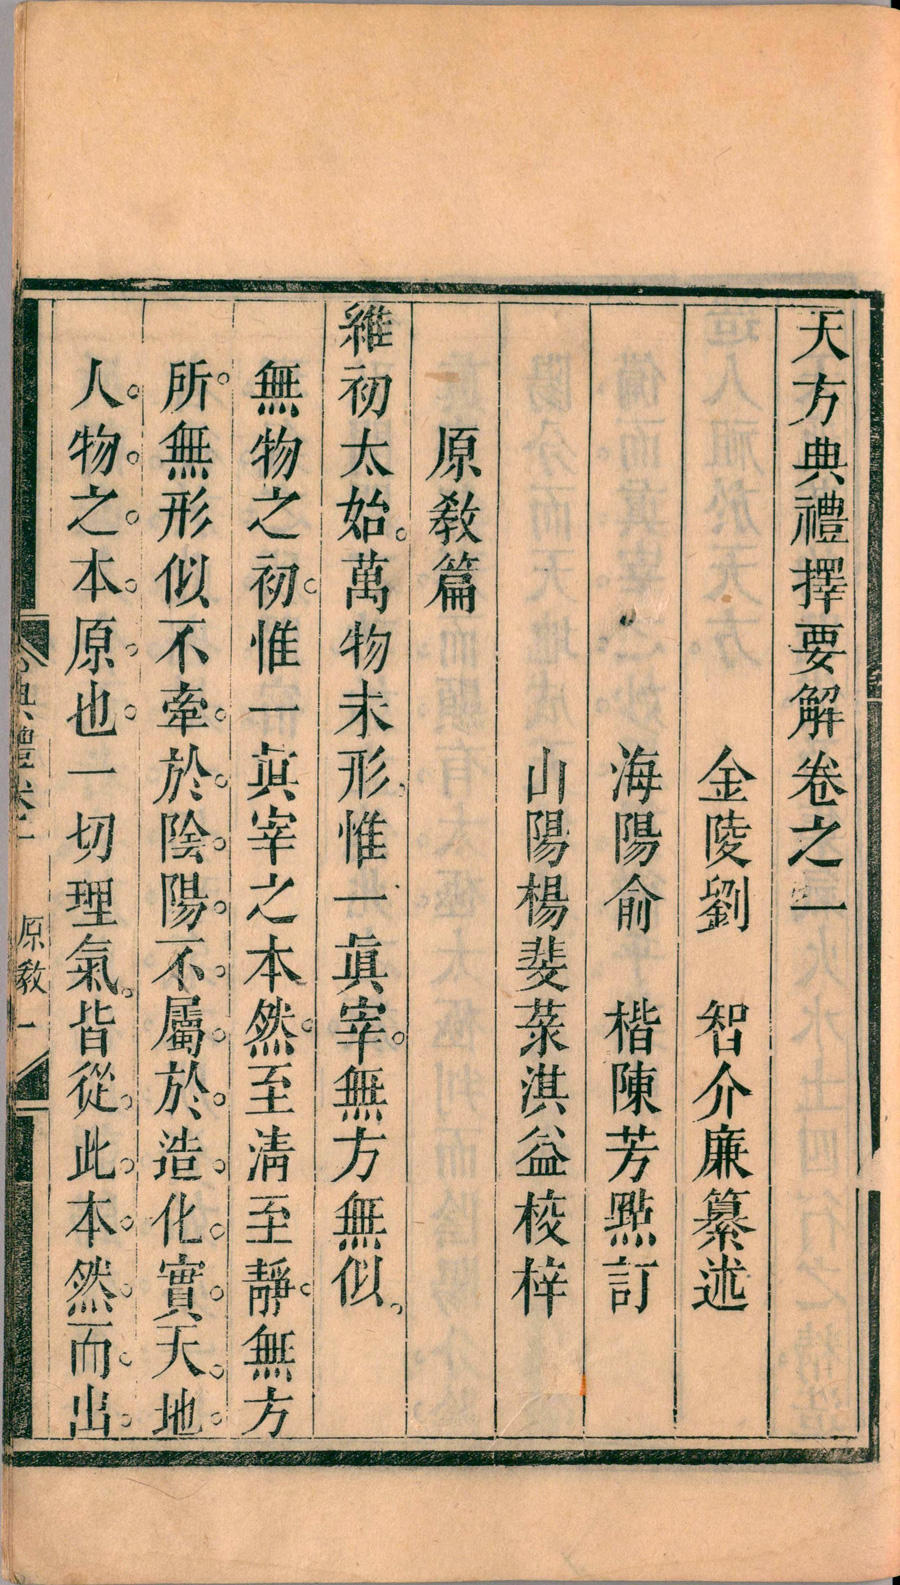 天方典禮擇要解卷之一
金陵劉　智介廉纂述
海陽俞　楷陳芳點訂
山陽楊斐菉淇益梭梓
原教篇
維初太始。萬物未形。惟一眞宰。無方無似。
無物之初。惟一眞宰之本然。至清至靜。無方
所。無形似。不牽於陰陽。不屬於造化。實天地
人物之本原也。一切理氣。皆從此本然而出
典禮卷一　原教　一